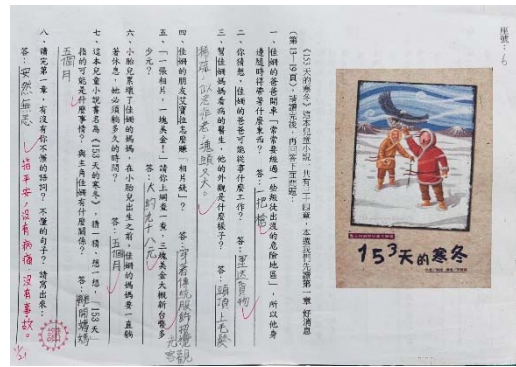 座號:6
《153天的寒冬》這本兒童小說,共有二十四章,本週我們先讀第一章 好消息
(第13-19頁),請讀完後,再回答下面問題:
一、佳姍的爸爸開車「常常要經過一些歹徒出沒的危險地區」,所以他身
邊隨時得帶著什麼東西? 答:一把槍
二、你猜想,佳姍的爸爸可能從事什麼工作? 答:運送貨物
三、幫佳姍媽媽看病的醫生,他的外觀是什麼樣子? 答:頭頂上毛髮
稀疏,
四、佳姍的朋友艾寶拉怎麼賺「相片錢」? 答:穿著傳統服飾
觀光客
五、「一張相片,一塊美金!」請你上網查一查,三塊美金大概新台幣多
少元? 答:大約九十八元
六、小胎兒累壞了佳姍的媽媽,在小胎兒出生之前,佳姍的媽媽要一直躺
著休息,她必須躺多久的時間? 答:五個月
七、這本兒童小說書名為《153天的寒冬》,猜一猜、想一想,「153天」
指的可能是什麼事情?與主角佳姍有什麼關係? 答:離開媽媽
五個月
八、讀完第一章,有沒有你不懂的語詞?不懂的句子?請寫出來:
答:安然無恙 指平安,沒有病痛,沒有事故。
153天的寒冬